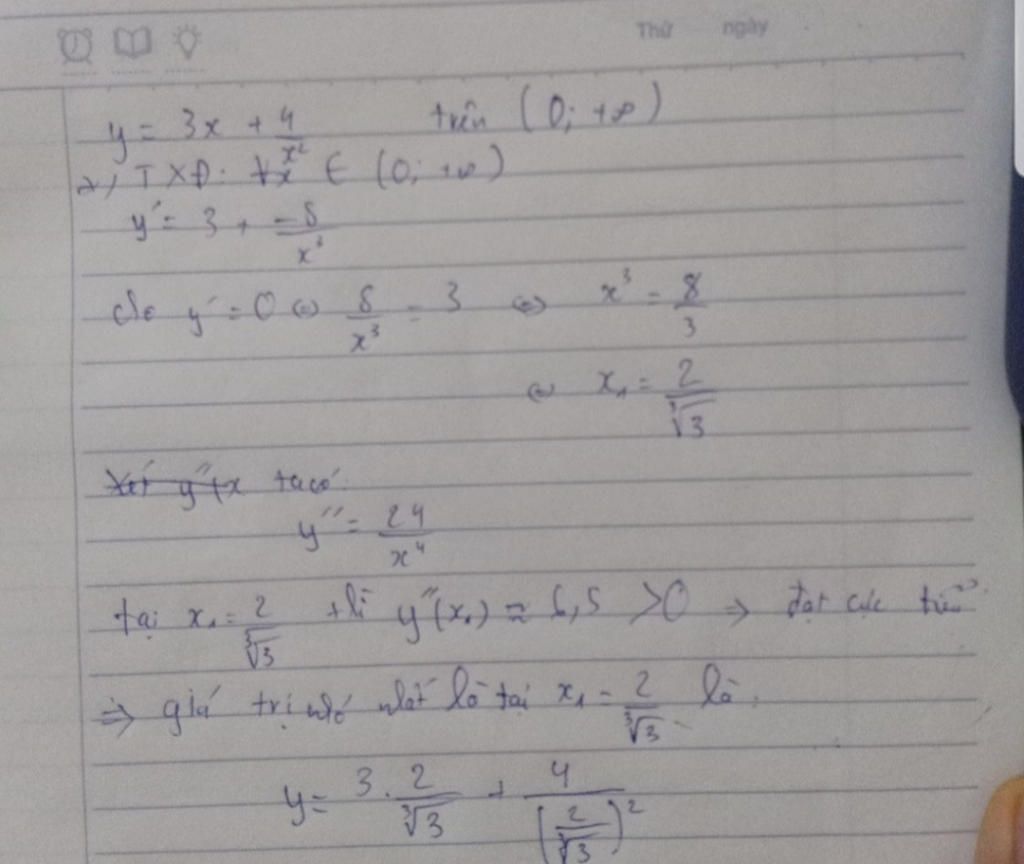 Thứ ngày
y = 3x + 4/x² trên (0; +∞)
TXĐ: ∀x ∈ (0; +∞)
y' = 3 + -8/x³
cho y' = 0 ⇔ 8/x³ = 3 ⇔ x³ = 8/3
⇔ x₁ = 2/∛3
Xét y''(x ta có:
y'' = 24/x⁴
tại x₁ = 2/∛3 thì y''(x₁) ≈ 6,5 >0 ⇒ đạt cực tiểu
⇒ giá trị nhỏ nhất là tại x₁ = 2/∛3 là
y = 3 . 2/∛3 + 4/(2/∛3)²